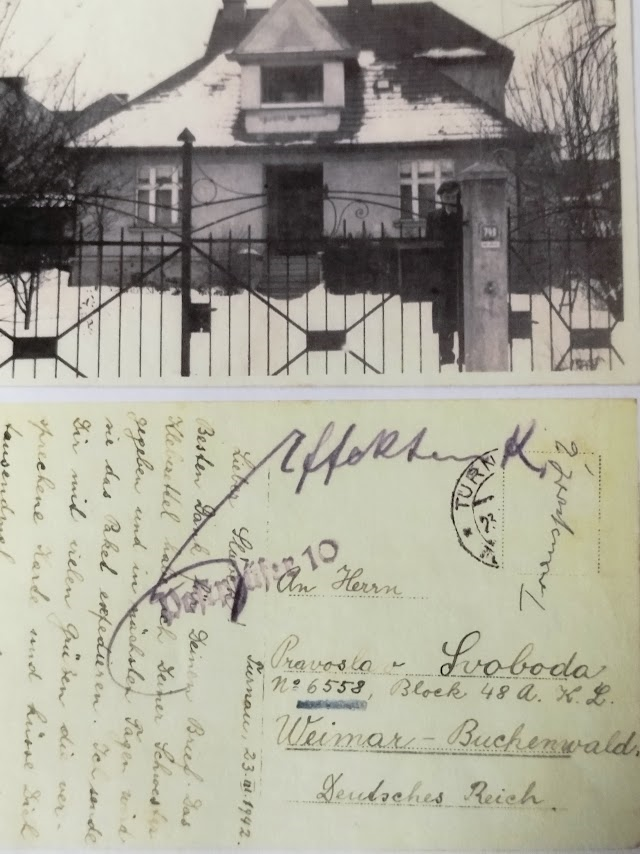 Effekten K.
TURN
Postprüfer 10
An Herrn
Pravoslav Svoboda
No 6558, Block 48 A. K. L.
Weimar-Buchenwald.
Deutsches Reich.
Turnau, 23.III.1942.
Lieber
Besten Dank für Deinen Brief. Das
Klebzettel habe ich Deiner Schwester
gegeben und in nächsten Tagen wird
sie das Paket expedieren. Ich sende
Dir mit vielen Grüßen die ver-
sprochene Karte und küsse Dich
tausendmal